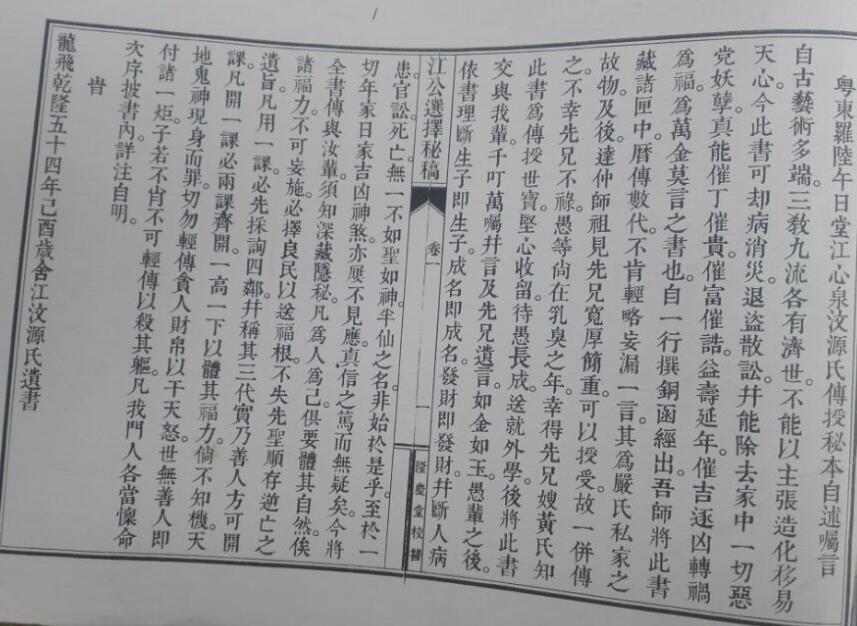 粵東羅陸午日堂江心泉汶源氏傳授秘本自述囑言
自古藝術多端。三敎九流各有濟世。不能以主張造化移易
天心。今此書可却病消災。退盜散訟。幷能除去家中一切惡
党妖孽。真能催丁催貴。催富催誥。益壽延年。催吉逐凶。轉禍
為福。為萬金莫言之書也。自一行撰銅函經出。吾師將此書
藏諸匣中。曆傳數代。不肯輕略妄漏一言。其為嚴氏私家之
故物。及後達仲師祖見先兄寬厚簡重。可以授受。故一併傳
之。不幸先兄不祿。愚等尙在乳臭之年。幸得先兄嫂黃氏知
此書為傳授世寶。堅心收留。待愚長成。送就外學。後將此書
交與我輩。千叮萬囑。幷言及先兄遺言。如金如玉。愚輩之後。
依書理斷。生子即生子。成名即成名。發財即發財。幷斷人病
江公選擇秘稿
卷一
一
隆慶堂校醫
患官訟。死亡。無一不如聖如神。半仙之名。非始於是乎。至於一
切年家日家吉凶神煞。亦屢不見應。真信之篤而無疑矣。今將
全書傳與汝輩。須知深藏隱秘。凡為人為己。俱要體其自然。俟
諸福力。不可妄施。必擇良民以送福根。不失先聖順存逆亡之
遺旨。凡用一課。必先採詢四鄰。幷稱其三代實乃善人。方可開
課。凡開一課。必兩課齊開。一高一下。以體其福力。倘不知機。天
地鬼神現身而罪。切勿輕傳貪人財帛。以干天怒。世無善人。即
付諸一炬。子若不肖。不可輕傳。以殺其軀。凡我門人各當懍命
次序披書內。詳注自明。
旹
龍飛乾隆五十四年己酉歲舍江汶源氏遺書